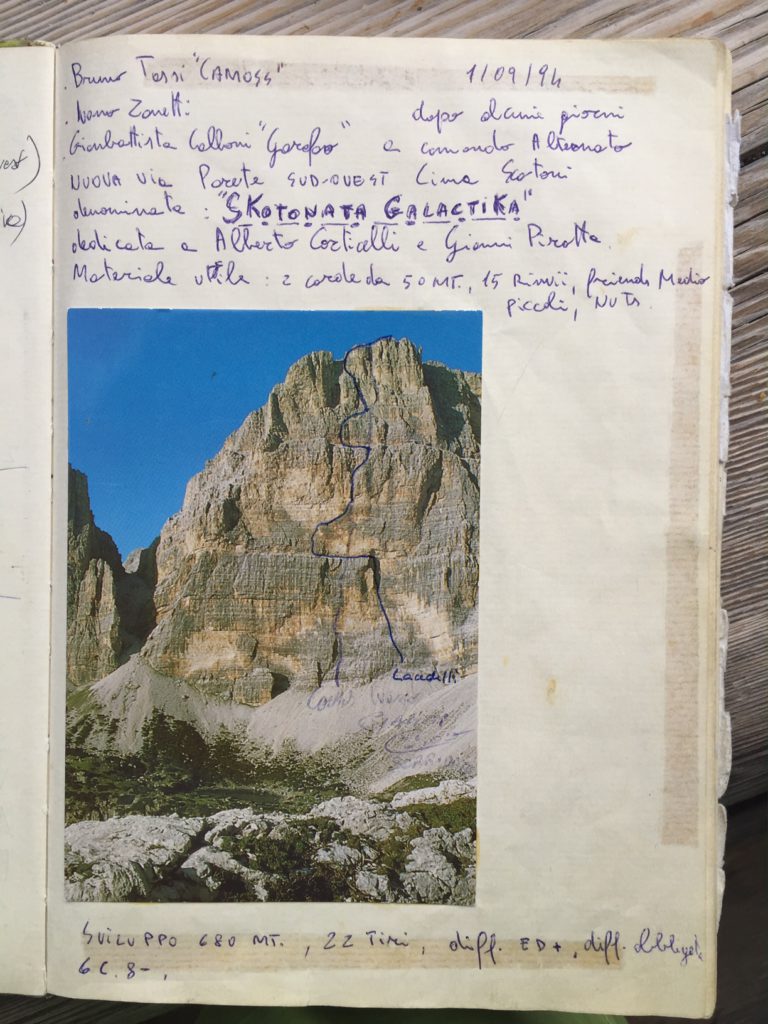 Bruno Tassi "CAMOSS" 1/09/94
Ivano Zanetti dopo alcuni giorni
Gianbattista Calloni "Garepo" a comando Alternato
NUOVA VIA Parete SUD-OUEST Cima Scotoni
denominata : "SKOTONATA GALACTIKA"
dedicata a Alberto Corticelli e Gianni Pirotta.
Materiale utile : 2 corde da 50 MT., 15 Rinvii, friends Medio
piccoli, NUTS.
Lacedelli
Ivano
SVILUPPO 680 MT. , 22 Tiri, diff. ED+, diff. obbligat.
6C. 8-,